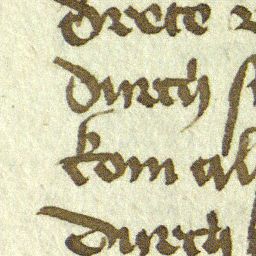 drete
durch
kom al
durch